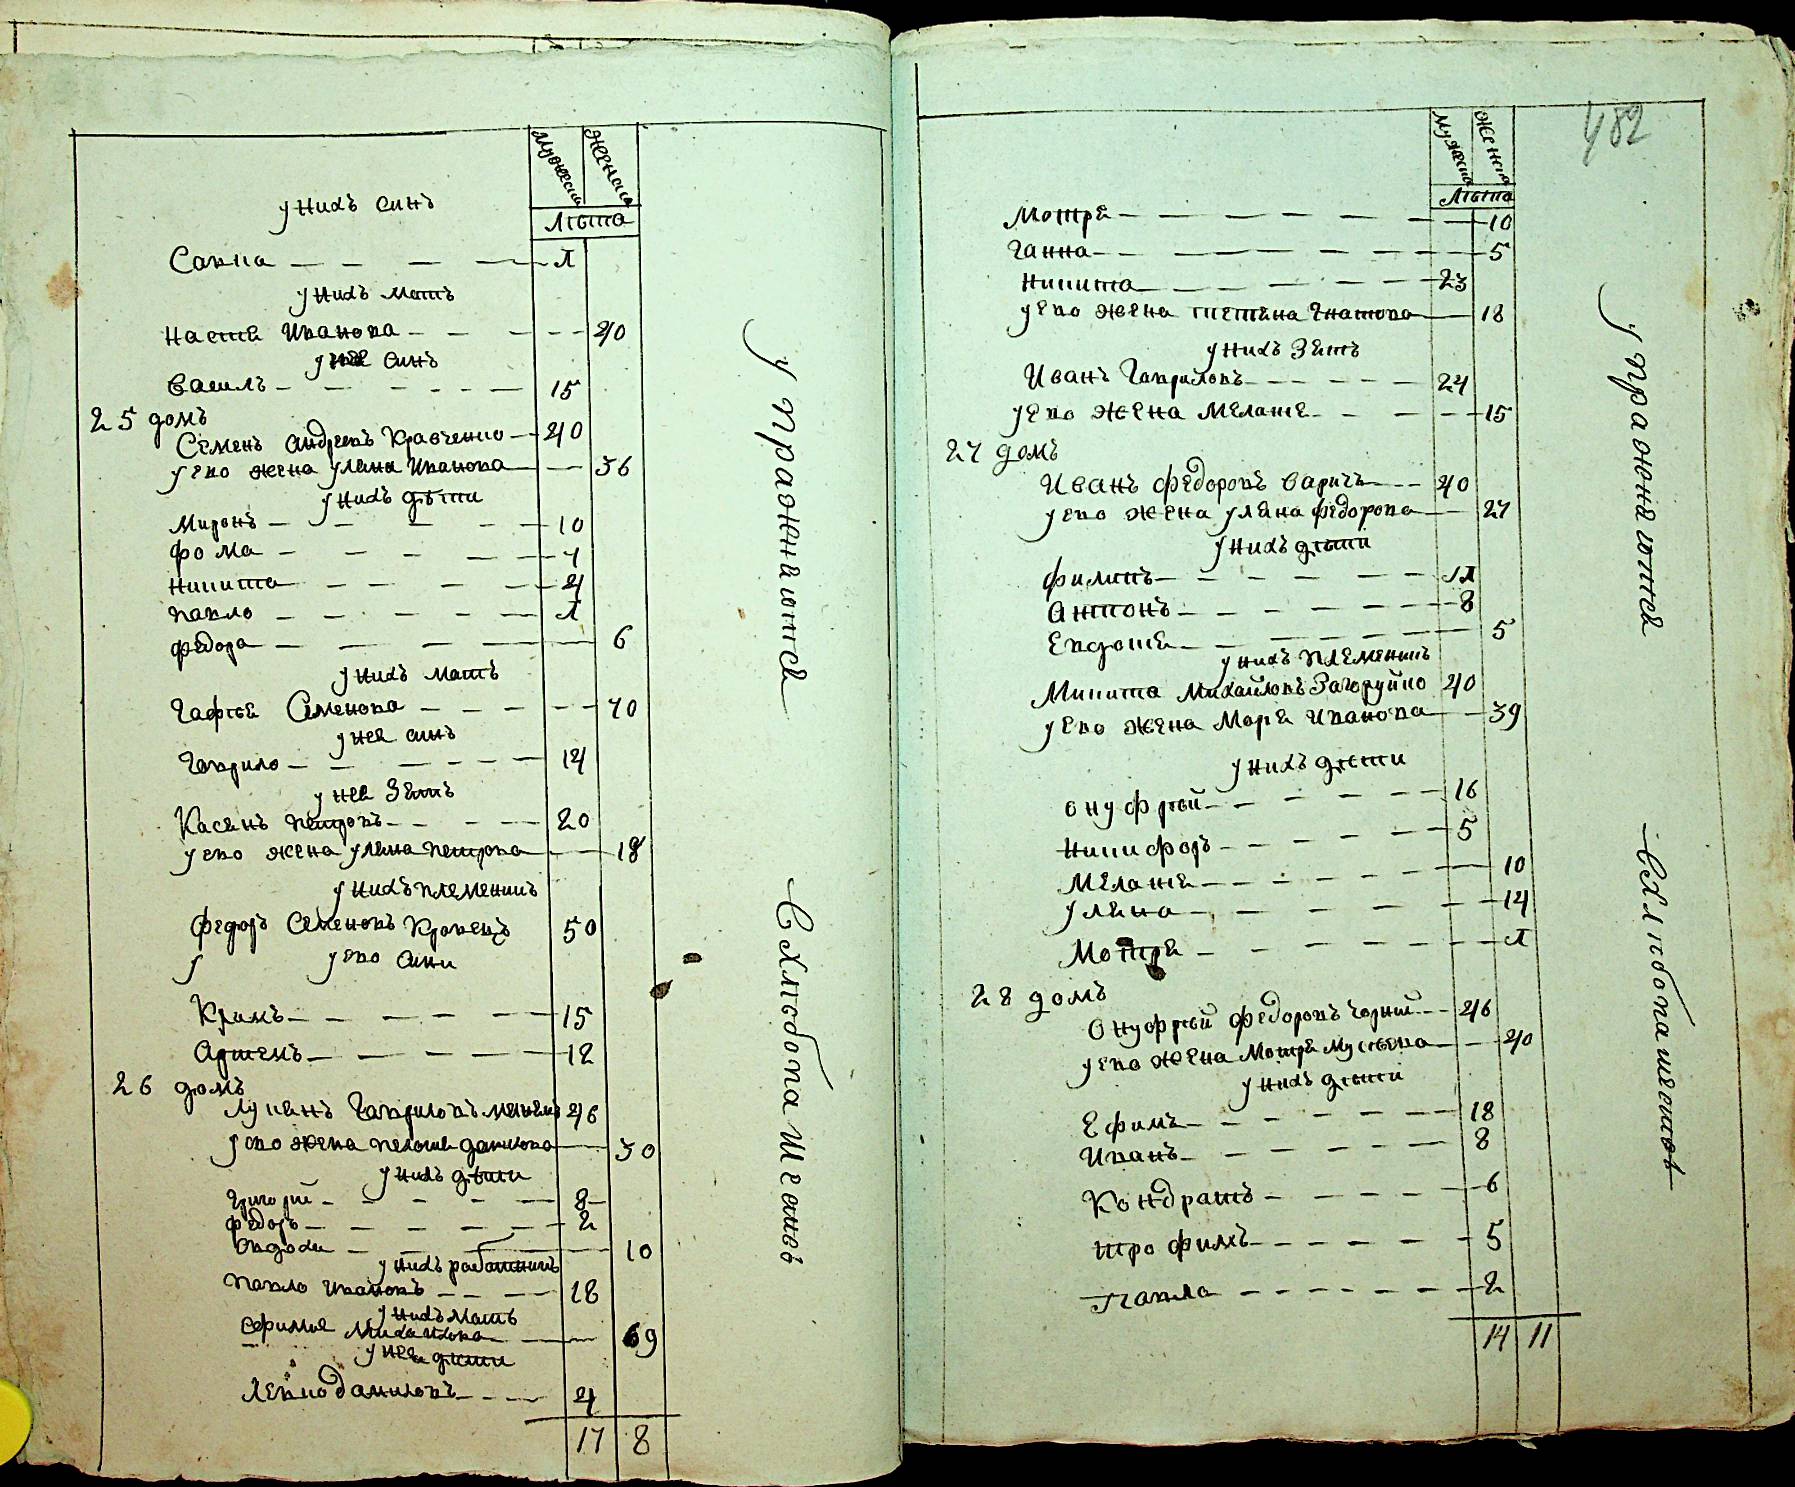 Мужеска Женска
Лѣта
у нихъ синъ
Савка — Л
у нихъ мать
Настя Иванова — 40
у нея синъ
Василь — 15
25 домъ
Семенъ Андреевъ Кравченко — 40
у его жена Уляна Иванова — 36
у нихъ дѣти
Миронъ — 10
Фома — 7
Никита — 4
Павло — Л
Федора — 6
у нихъ мать
Гафѣя Семенова — 70
у нея синъ
Гаврило — 14
у нея зять
Касянъ Петровъ — 20
у его жена Уляна Петрова — 18
у нихъ племеникъ
Федоръ Семеновъ Кравецъ 50
у его сини
Климъ — 15
Артемъ — 12
26 домъ
Лукянъ Гавриловъ 46
у его жена Пелагея Данилова — 30
у нихъ дѣти
Григорій — 8
Федоръ — 2
Явдоха — 10
у нихъ работникъ
Павло Ивановъ — 18
у нихъ мать
Ефимия Михайлова — 69
у нея дѣти
Левко Даниловъ — 4
17 8
упражняются
в хлѣбопашествѣ
482
Мужеска Женска
Лѣта
Мотря — 10
Ганна — 5
Никита — 23
у его жена Тетяна Гнатова — 18
у нихъ зять
Иванъ Гавриловъ — 24
у его жена Мелания — 15
27 домъ
Иванъ Федоровъ Варичъ — 40
у его жена Уляна Федорова — 27
у нихъ дѣти
Филипъ — 1Л
Антонъ — 8
Евдокия — 5
у нихъ племеникъ
Микита Михайловъ Загоруйко 40
у его жена Маря Иванова — 39
у нихъ дѣти
Онуфрѣй — 16
Никифоръ — 5
Мелания — 10
Уляна — 14
Мотря — Л
28 домъ
Онуфрѣй Федоровъ Чорній — 46
у его жена Мотря — 40
у нихъ дѣти
Ефимъ — 18
Иванъ — 8
Кондратъ — 6
Трофимъ — 5
Павла — 2
14 11
упражняются
в хлѣбопашествѣ